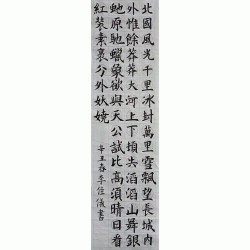 北國風光千里冰封萬里雪飄望長城內
外惟餘莽莽大河上下頓失滔滔山舞銀
虵原馳蠟象欲與天公試比高須晴日看
紅裝素裹分外妖嬈
辛丑春李佳儀書